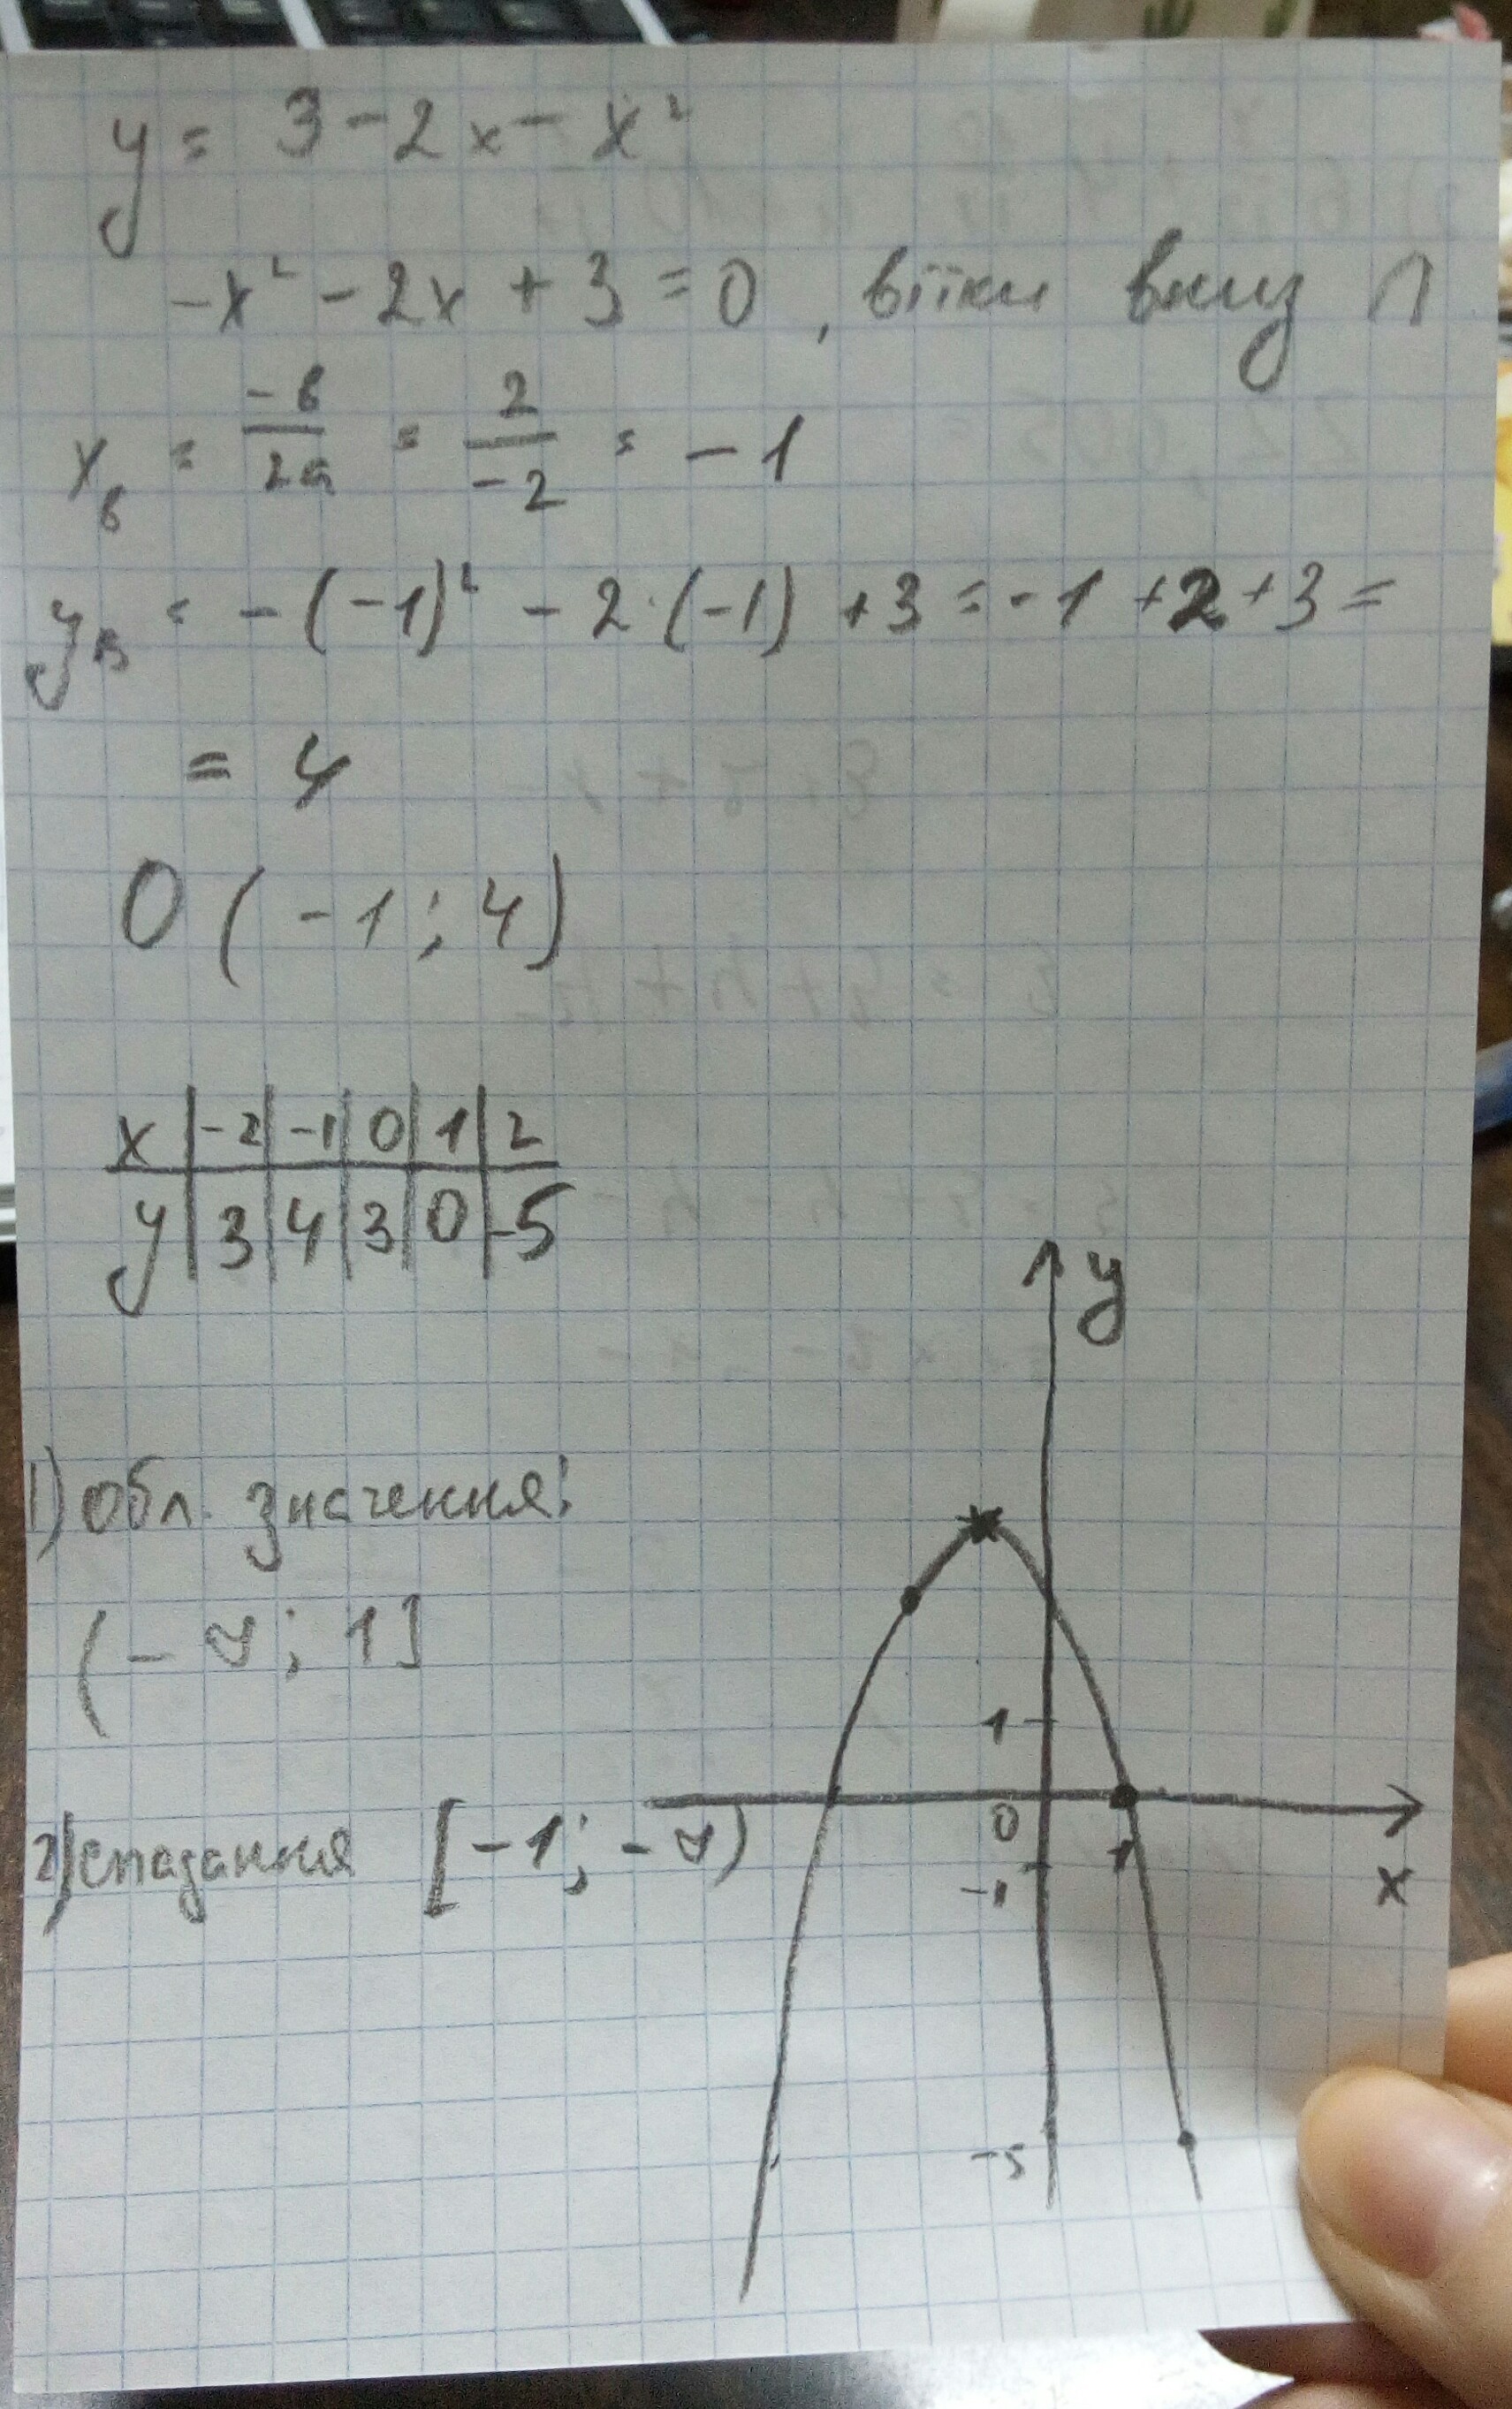 y = 3 - 2x - x²
-x² - 2x + 3 = 0, вітки вниз ∩
xв = -в/2a = 2/-2 = -1
yв = -(-1)² - 2·(-1) + 3 = -1 + 2 + 3 =
= 4
O (-1; 4)
x | -2 | -1 | 0 | 1 | 2
y | 3 | 4 | 3 | 0 | -5
1) обл. значення:
(-∞; 1]
2) спадання [-1; -∞)
y
1
0
1
-1
x
-5